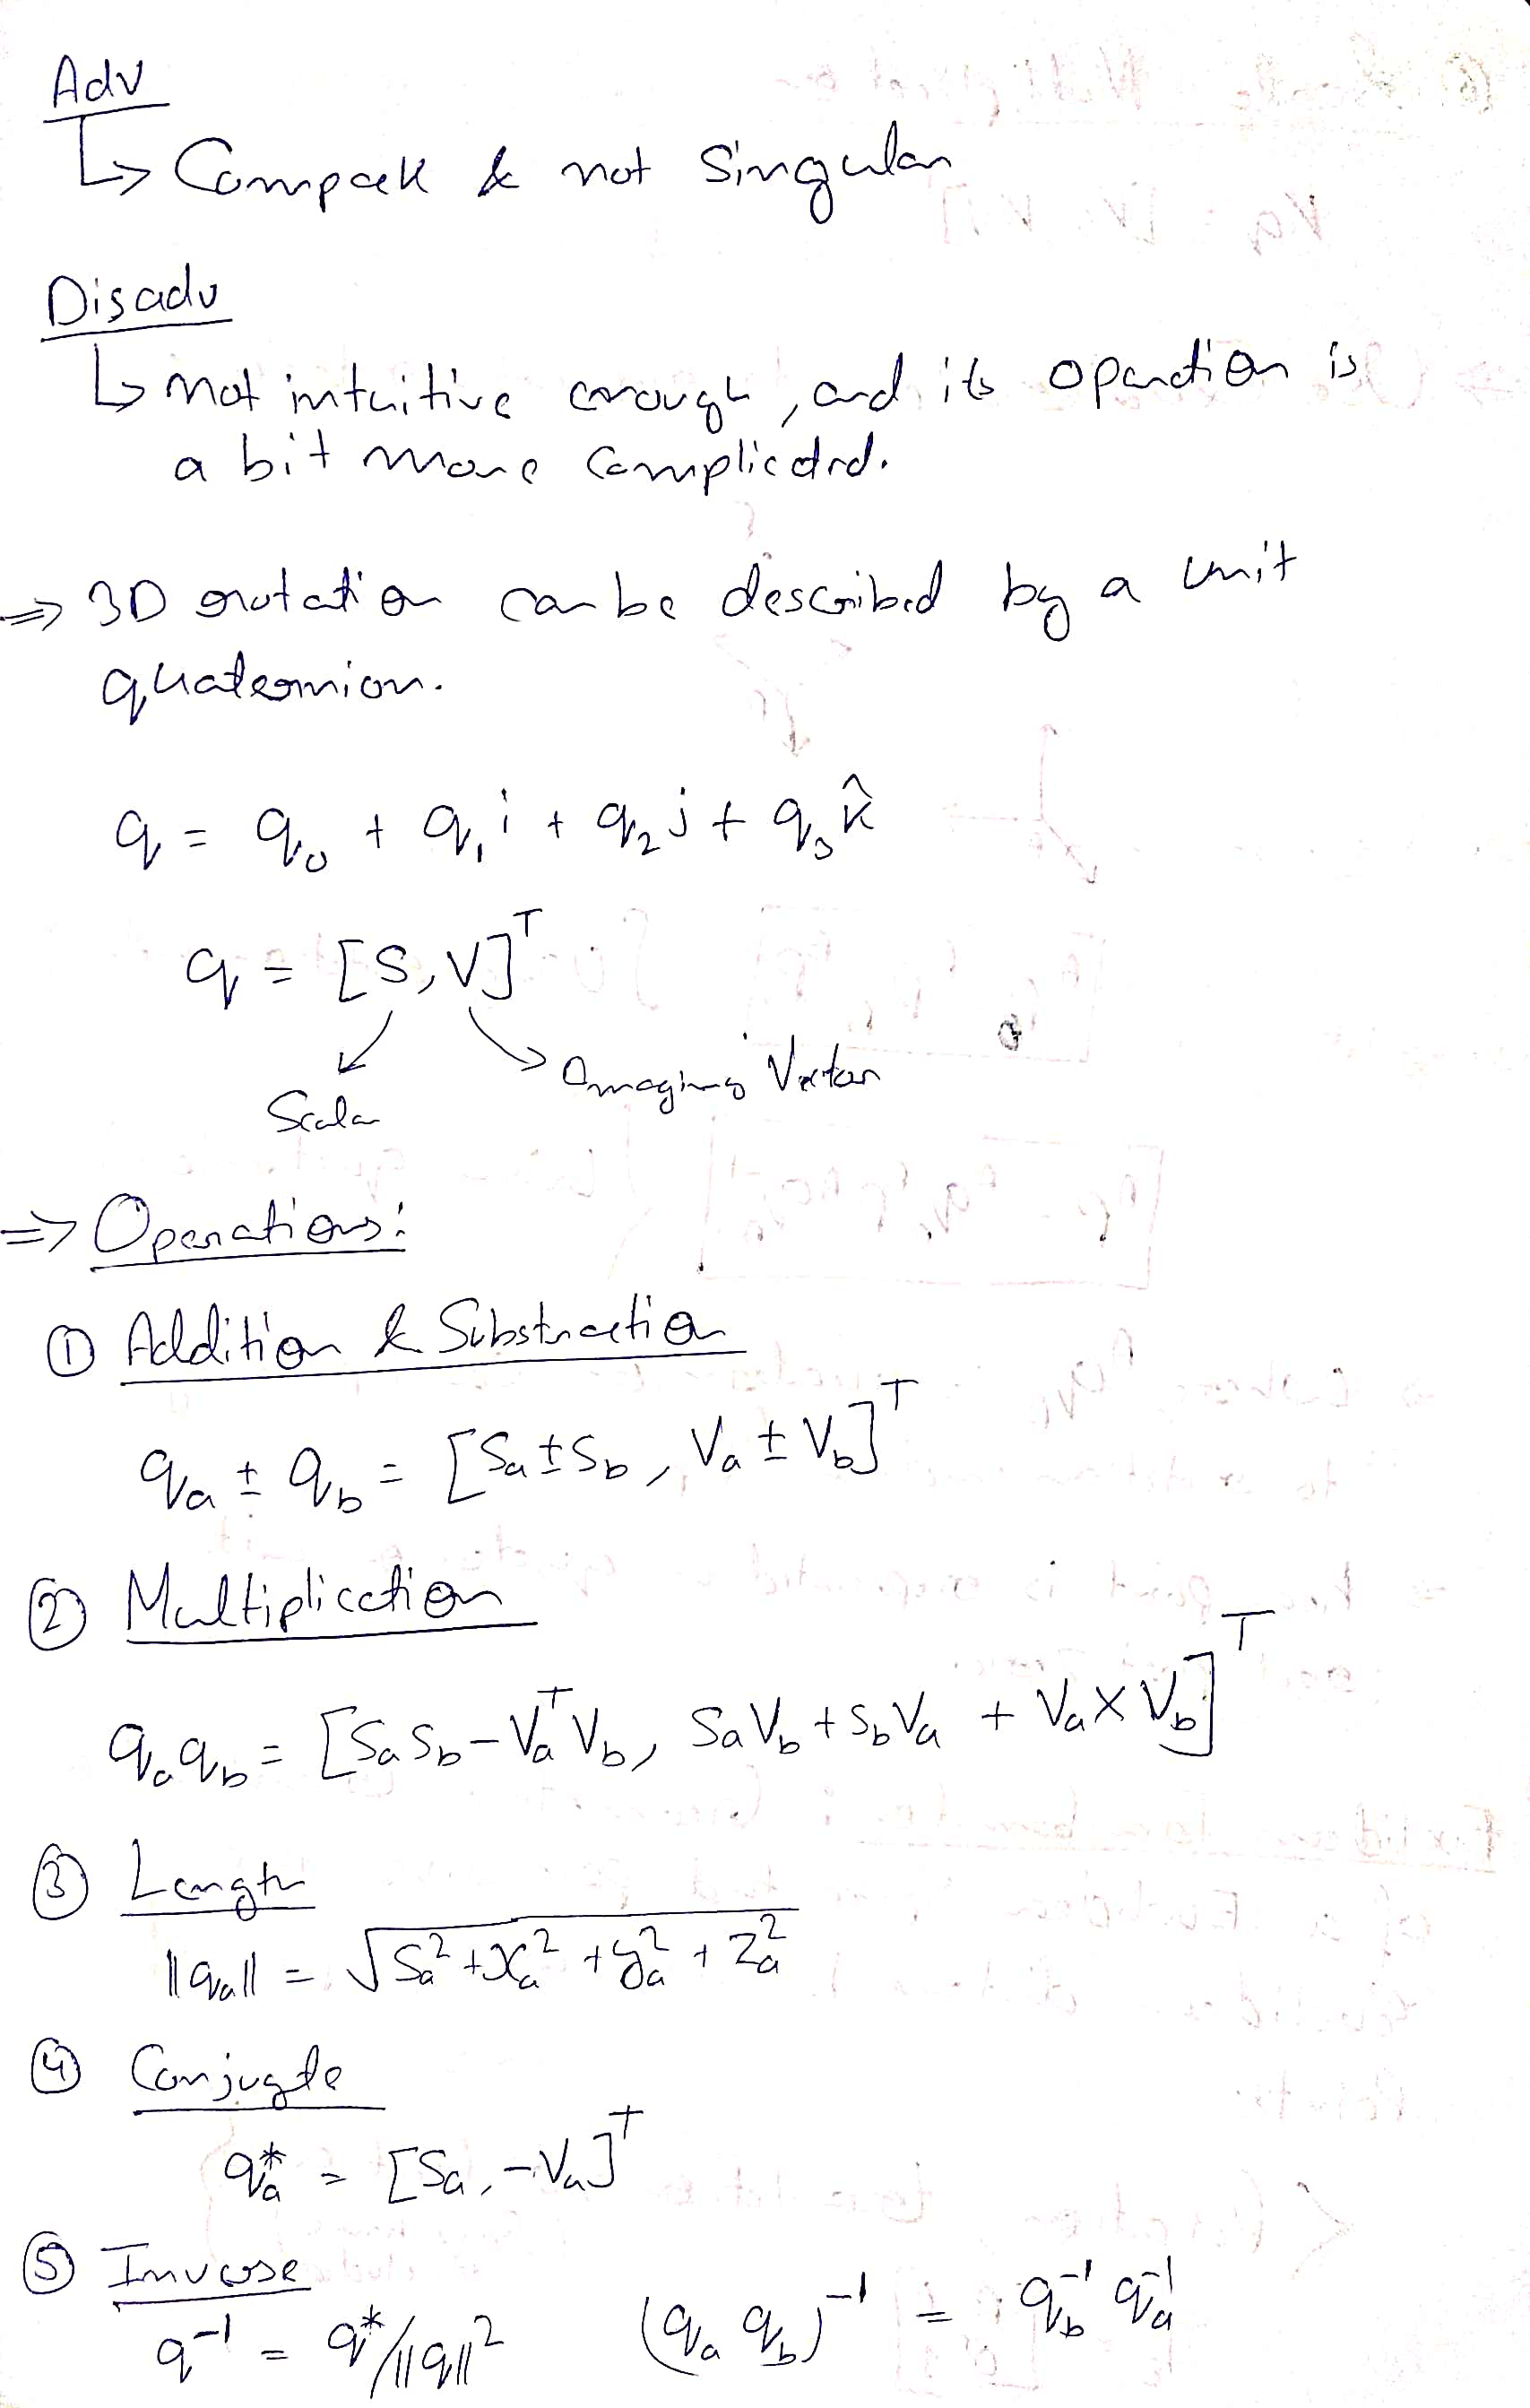 Adv
↳ Compact & not Singular
Disadv
↳ not intuitive enough, and its operation is
a bit more complicated.
⇒ 3D rotation can be described by a unit
quaternion.
q = q₀ + q₁i + q₂j + q₃k̂
q = [S, V]ᵀ
Scalar Imaginary Vector
⇒ Operations:
① Addition & Substraction
qa ± qb = [Sa ± Sb, Va ± Vb]ᵀ
② Multiplication
qa qb = [Sa Sb − Vaᵀ Vb, Sa Vb + Sb Va + Va × Vb]ᵀ
③ Length
‖qa‖ = √(Sa² + xa² + ya² + za²)
④ Conjugate
qa* = [Sa, −Va]ᵀ
⑤ Inverse
q⁻¹ = q*/‖q‖² (qa qb)⁻¹ = qb⁻¹ qa⁻¹